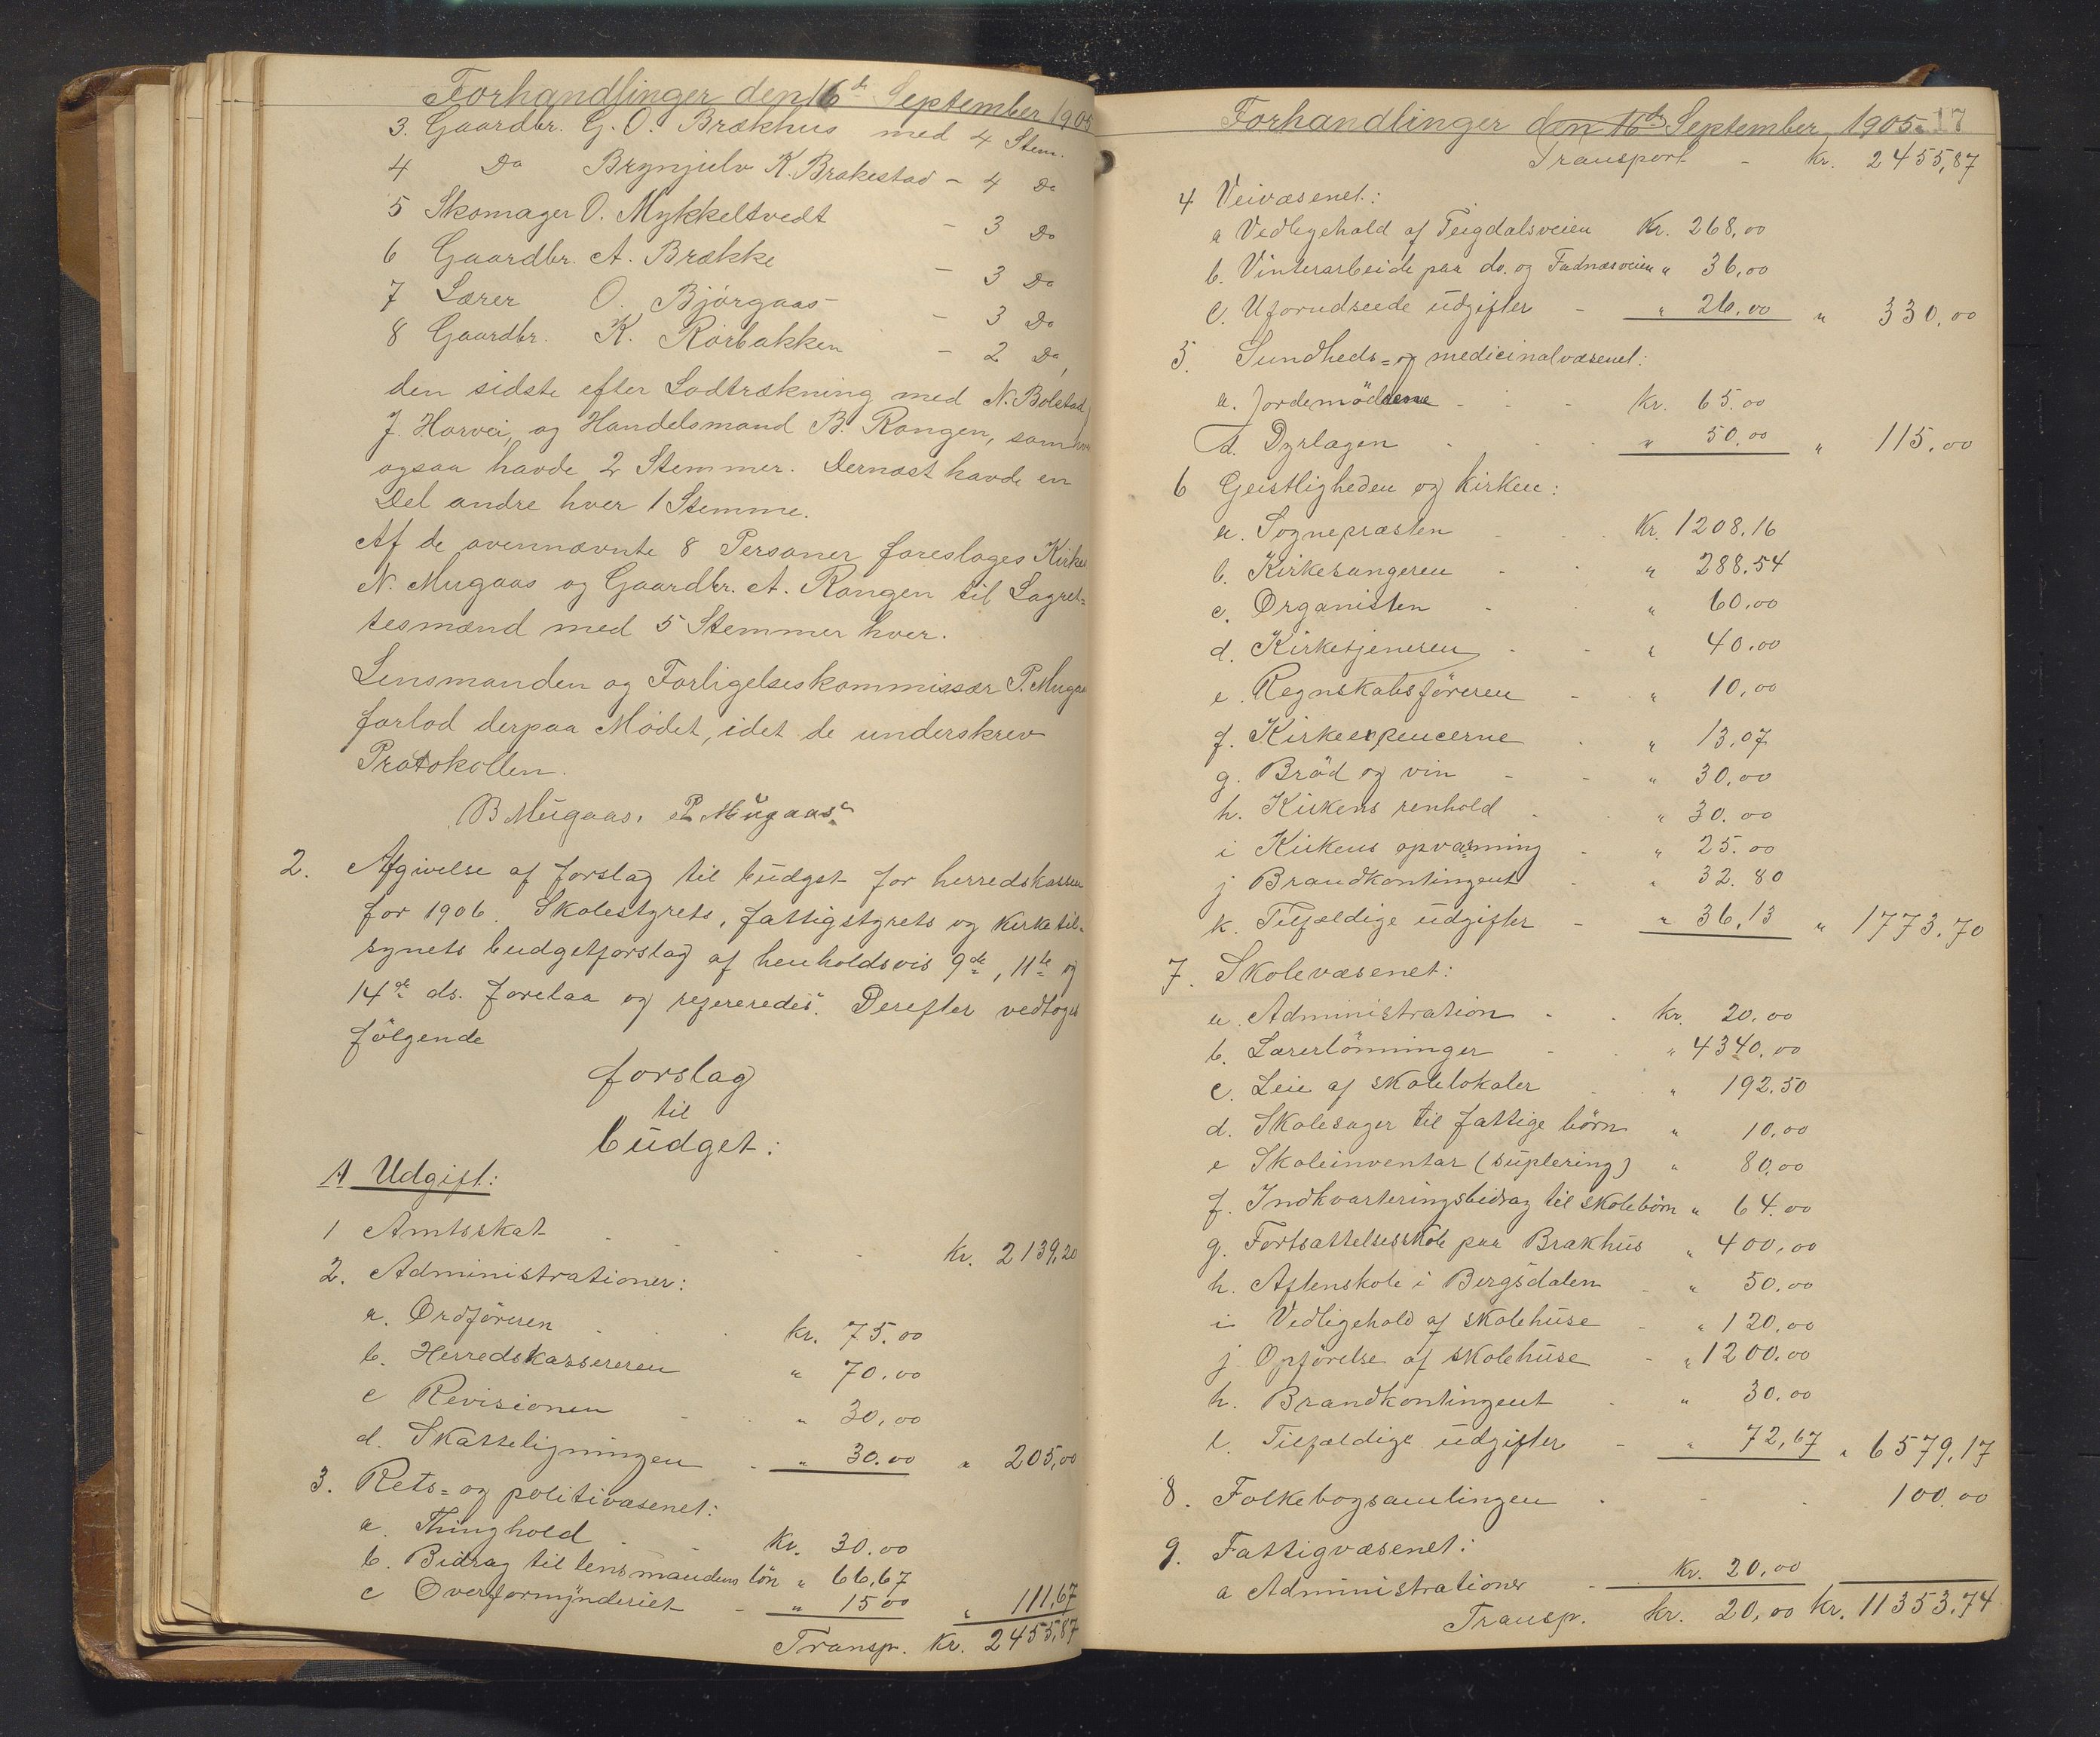 Forhandlinger den 16de September 1905
3. Gaardbr. G. O. Brækhus med 4 Stem.
4 Do Brynjulv K. Brakestad - 4 Do
5 Skomager O. Mykkeltvedt - 3 Do
6 Gaardbr. A. Brække - 3 Do
7 Lærer O. Bjørgaas - 3 Do
8 Gaardbr. K. Rørbakken - 2 Do,
den sidste efter Lodtrækning med N. Bolstad,
J. Horvei, og Handelsmand B. Rongen, som
ogsaa havde 2 Stemmer. Dernæst havde en
Del andre hver 1 Stemme.
Af de ovennævnte 8 Personer foreslages Kirkes
N. Mugaas og Gaardbr. A. Rongen til Lagret-
tesmænd med 5 Stemmer hver.
Lensmanden og Forligelseskommissær P. Mugaa
forlod derpaa Mødet, idet de underskrev
Protokollen.
B Mugaas. P. Mugaas
2. Afgivelse af forslag til budget for herredskassen
for 1906. Skolestyrets, fattigstyrets og kirketil-
synets budgetforslag af henholdsvis 9de, 11te og
14de ds. forelaa og refereredes. Derefter vedtoges
følgende
forslag
til
budget:
A Udgift:
1 Amtsskat - - - - kr. 2139,20
2. Administrationer:
a. Ordføreren - - - kr. 75.00
b. Herredskassereren " 70.00
c Revisionen - - " 30,00
d. Skatteligningen - " 30.00 " 205,00
3. Rets- og politivæsenet:
a. Thinghold - - kr. 30.00
b. Bidrag til lensmandens løn " 66,67
c Overformynderiet - " 15 00 " 111,67
Transp. kr. 2455,87
Forhandlinger den 16de September 1905. 17
Transport - kr. 2455,87
4 Veivæsenet:
a Vedligehold af Teigdalsveien Kr. 268,00
b. Vinterarbeide paa do. og Fadnæsveien " 36,00
c. Uforudseede udgifter - " 26.00 " 330,00
5. Sundheds- og medicinalvæsenet:
a. Jordemødrene - - - kr. 65.00
b. Dyrlægen - - - " 50.00 " 115,00
6 Geistligheden og kirken:
a. Sognepræsten - - Kr. 1208.16
b. Kirkesangeren - - " 288.54
c. Organisten - - " 60.00
d. Kirketjeneren - - " 40.00
e. Regnskabsføreren - - " 10,00
f. Kirkeexpencerne - " 13,07
g. Brød og vin - - " 30,00
h. Kirkens renhold - - " 30.00
i Kirkens opvarmning - " 25.00
j Brandkontingent - " 32.80
k. Tilfældige udgifter - " 36,13 " 1773.70
7. Skolevæsenet:
a. Administration - - kr. 20.00
b. Lærerlønninger - - " 4340,00
c. Leie af skolelokaler - " 192.50
d. Skolesager til fattige børn " 10,00
e Skoleinventar (suplering) " 80,00
f. Indkvarteringsbidrag til skolebørn " 64.00
g. Fortsættelsesskole paa Brækhus " 400,00
h. Aftenskole i Bergsdalen - " 50.00
i Vedligehold af skolehuse - " 120,00
j Opførelse af skolehuse - " 1200.00
k. Brandkontingent - " 30.00
l. Tilfældige udgifter - " 72,67 " 6579,17
8. Folkebogsamlingen - - - 100.00
9. Fattigvæsenet:
a Administrationer - kr. 20,00
Transp. kr. 20,00 kr. 11353,74